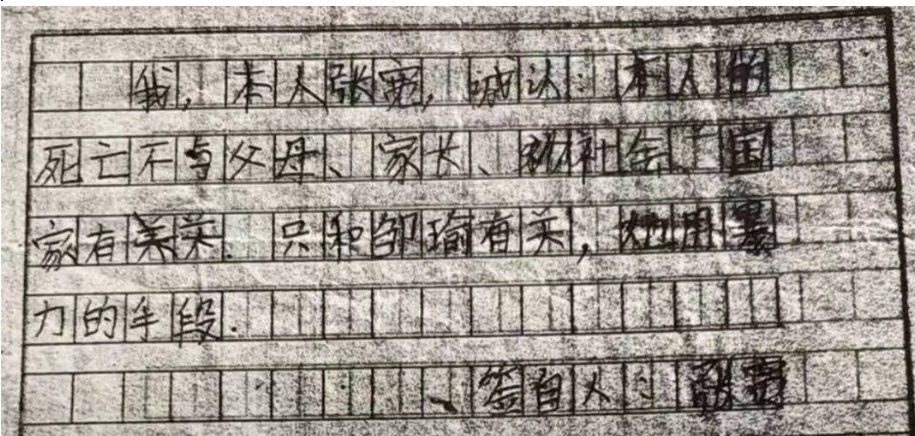 我,本人张宽,诚认:本人的
死亡不与父母、家长、社会、国
家有关. 只和邹瑜有关,她用暴
力的手段.
、签自人:张宽